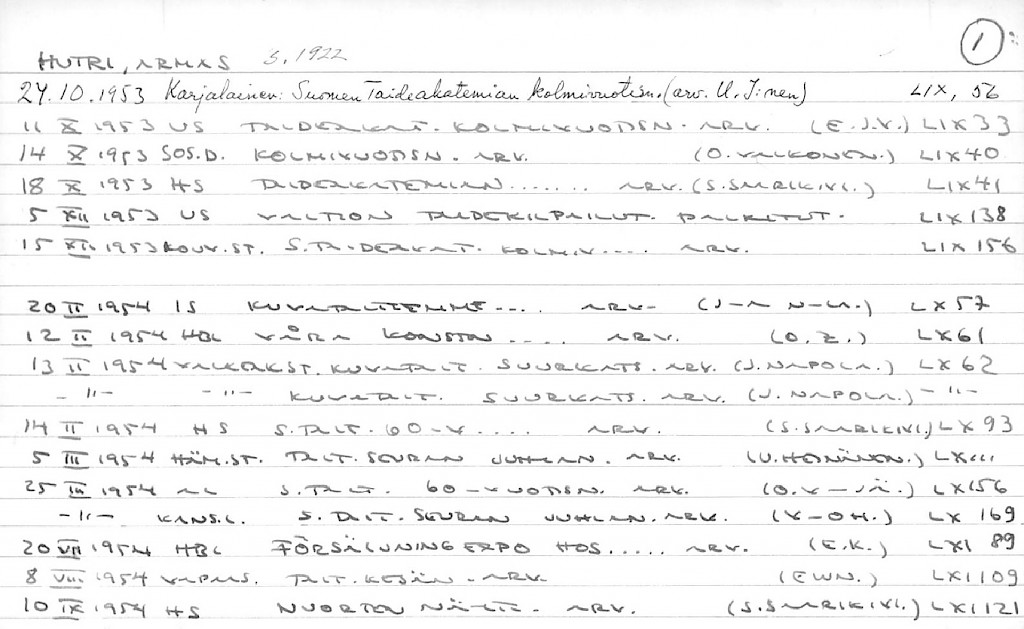 1
HUTRI, ARMAS S. 1922
24.10.1953 Karjalainen: Suomen Taideakatemian kolmivuotisn. (arv. U. J:nen) LIX, 56
11 X 1953 US TAIDEAKAT. KOLMIVUOTISN. ARV. (E.J.V.) LIX 33
14 X 1953 SOS.D. KOLMIVUOTISN. ARV. (O. VALKONEN.) LIX 40
18 X 1953 HS TAIDEAKATEMIAN....... ARV. (S. SAARIKIVI.) LIX 41
5 XII 1953 US VALTION TAIDEKILPAILUT. PALKITUT. LIX 138
15 1953 KOUV.ST. S. TAIDEAKAT. KOLMIV.... ARV. LIX 156
20 II 1954 IS KUVATAITEEMME.... ARV. LX 57
12 II 1954 HBL VÅRA KONSTN..... ARV. (O.Z.) LX 61
13 II 1954 VALKEAK.ST. KUVATAIT. SUURKATS. ARV. (J. NAPOLA.) LX 62
-"- -"- KUVATAIT. SUURKATS. ARV. (J. NAPOLA.) -"-
14 II 1954 HS S. TAIT. 60-V.... ARV. (S. SAARIKIVI.) LX 93
5 III 1954 HÄM.ST. TAIT. SEURAN JUHLAN. ARV. LX 111
25 III 1954 AL S. TAIT. 60-VUOTISN. ARV. (O.V-JÄ.) LX 156
-"- KANS.L. S. TAIT. SEURAN JUHLAN. ARV. (V-OH.) LX 169
20 VII 1954 HBL FÖRSÄLJNINGEXPO HOS..... ARV. (E.K.) LXI 89
8 VIII 1954 VAPAUS. TAIT. KESÄN. ARV. (EWN.) LXI 109
10 IX 1954 HS NUORTEN NÄYTT. ARV. (S. SAARIKIVI.) LXI 121